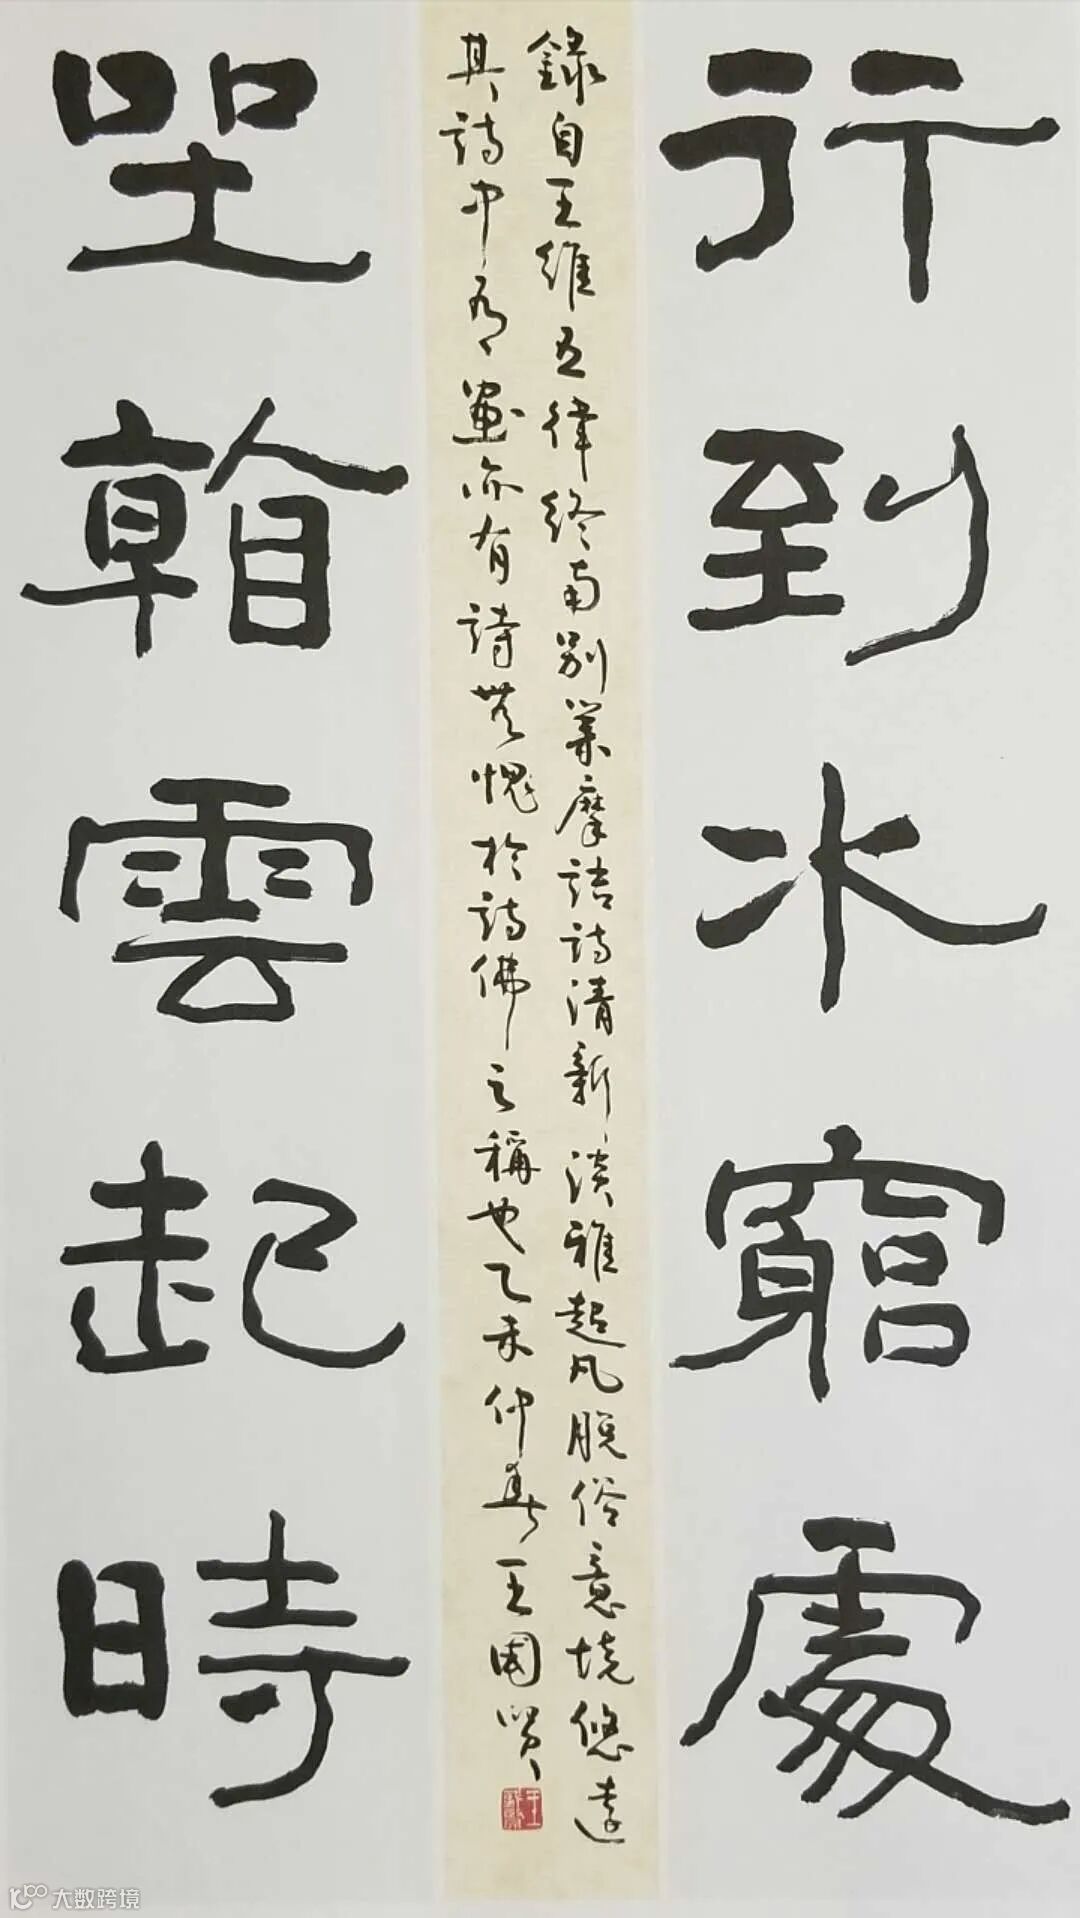 行到水窮處
坐看雲起時
錄自王維五律終南別業摩詰詩清新淡雅超凡脫俗意境悠遠
其詩中有畫亦有詩無愧於詩佛之稱也乙未仲春王國賢
大数跨境